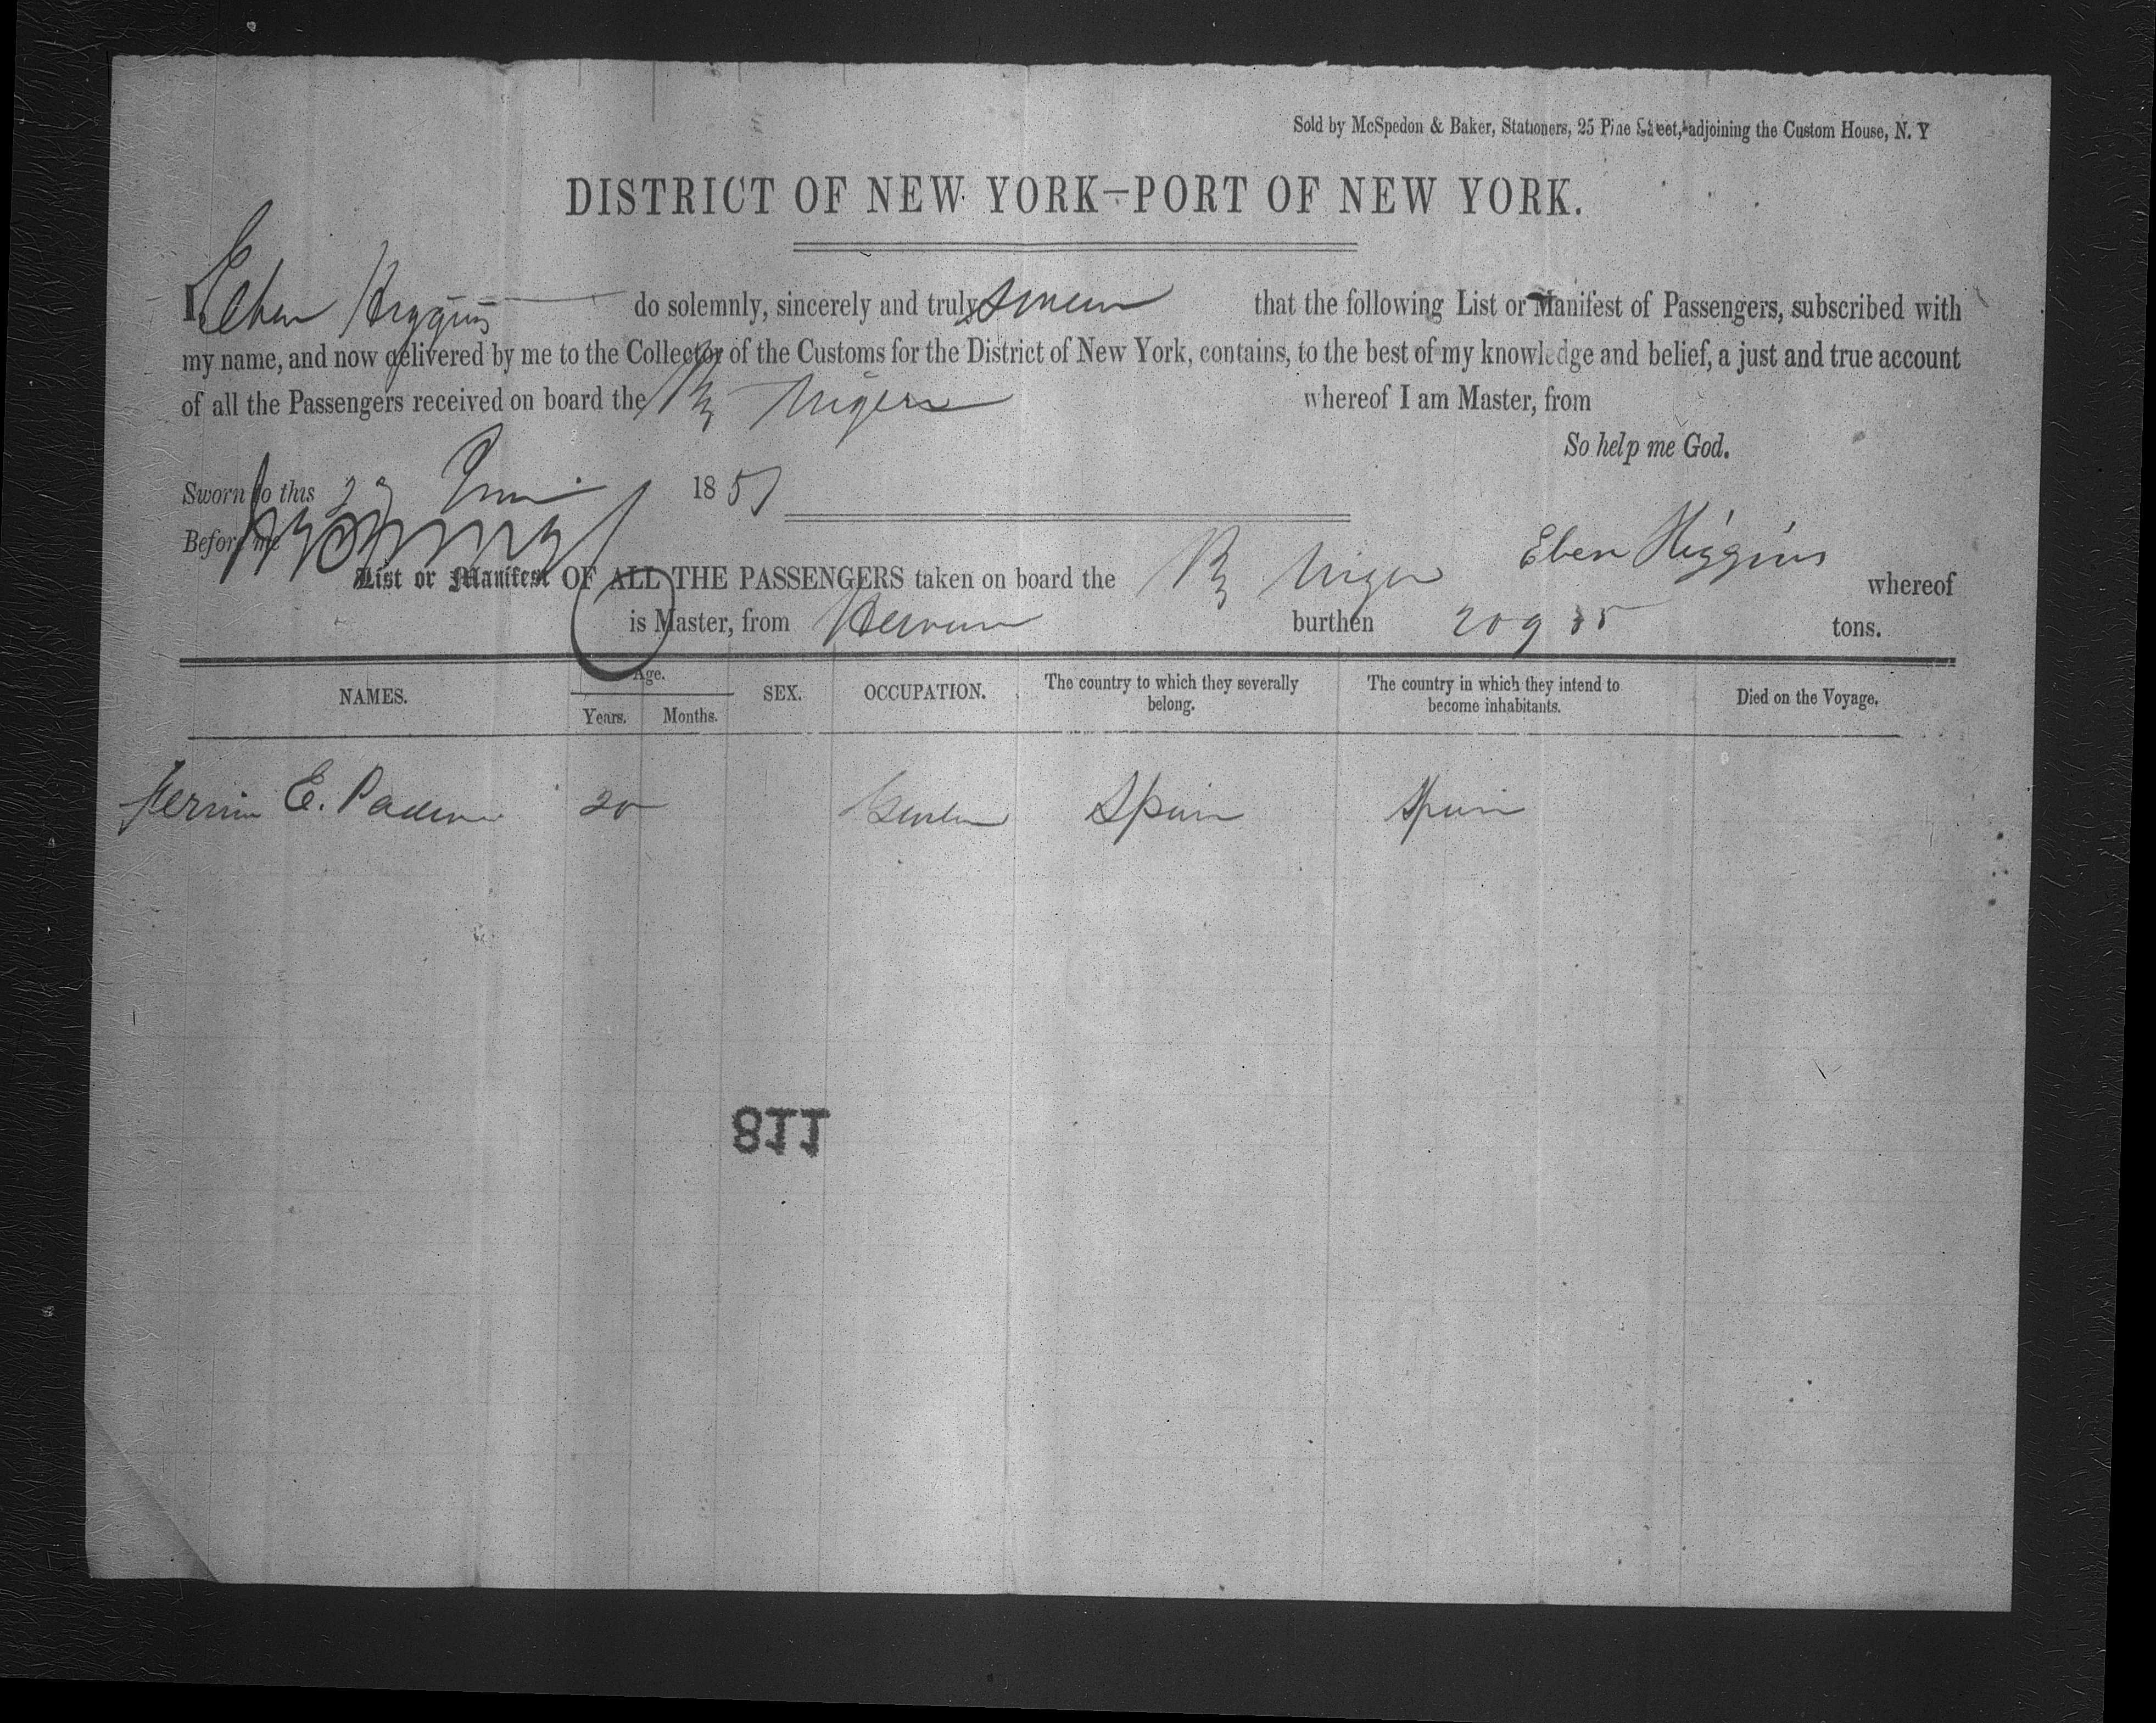 Sold by McSpedon & Baker, Stationers, 25 Pine Street, adjoining the Custom House, N. Y
DISTRICT OF NEW YORK—PORT OF NEW YORK.
I, Eben Higgins do solemnly, sincerely and truly swear that the following List or Manifest of Passengers, subscribed with
my name, and now delivered by me to the Collector of the Customs for the District of New York, contains, to the best of my knowledge and belief, a just and true account
of all the Passengers received on board the Niger whereof I am Master, from
So help me God.
Sworn to this 185
Before me
Eben Higgins
List or Manifest OF ALL THE PASSENGERS taken on board the Niger whereof
is Master, from burthen 209 35 tons.
NAMES. Age. SEX. OCCUPATION. The country to which they severally belong. The country in which they intend to become inhabitants. Died on the Voyage.
Years. Months.
E. 20 Spain Spain
118